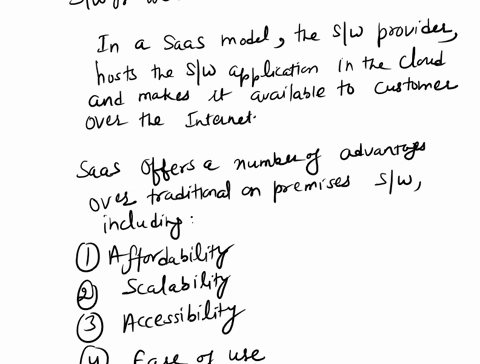 In a SaaS model, the S/W provider,
hosts the S/W application in the cloud
and makes it available to customer
over the Internet.
SaaS offers a number of advantages
over traditional on premises S/W,
including:
① Affordability
② Scalability
③ Accessibility
④ Ease of use